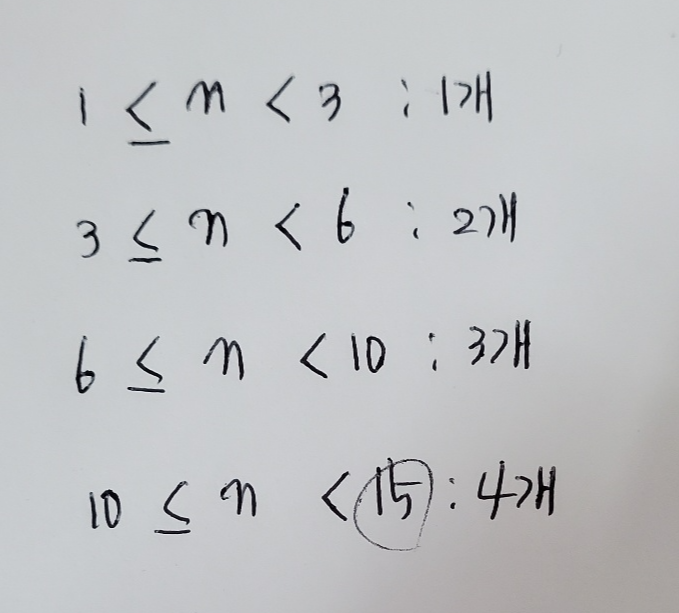 1 ≤ n < 3 : 1개
3 ≤ n < 6 : 2개
6 ≤ n < 10 : 3개
10 ≤ n < 15 : 4개